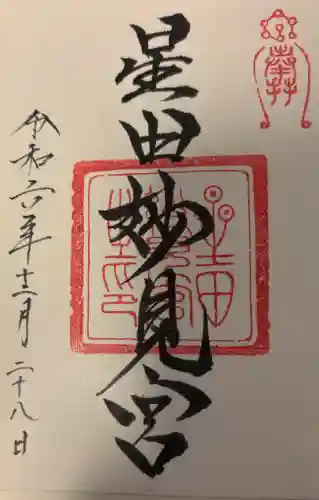 奉拝
星田妙見宮
令和六年十二月二十八日